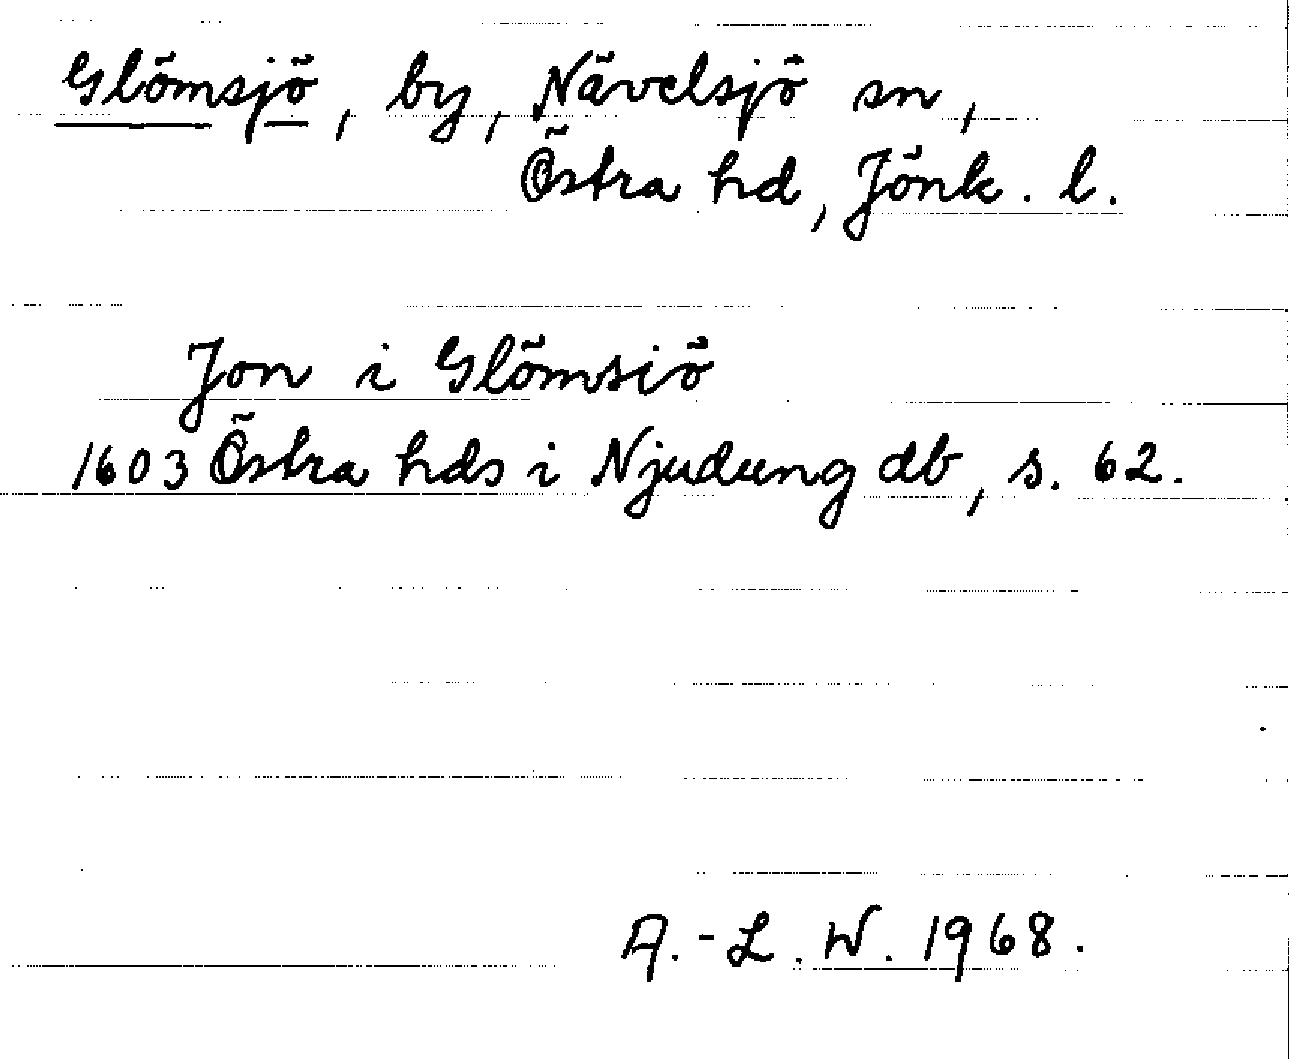 Glömsjö, by, Nävelsjö sn,
Östra hd, Jönk. l.
Jon i Glömsiö
1603 Östra hds i Njudung db, s. 62.
A.-L. W. 1968.